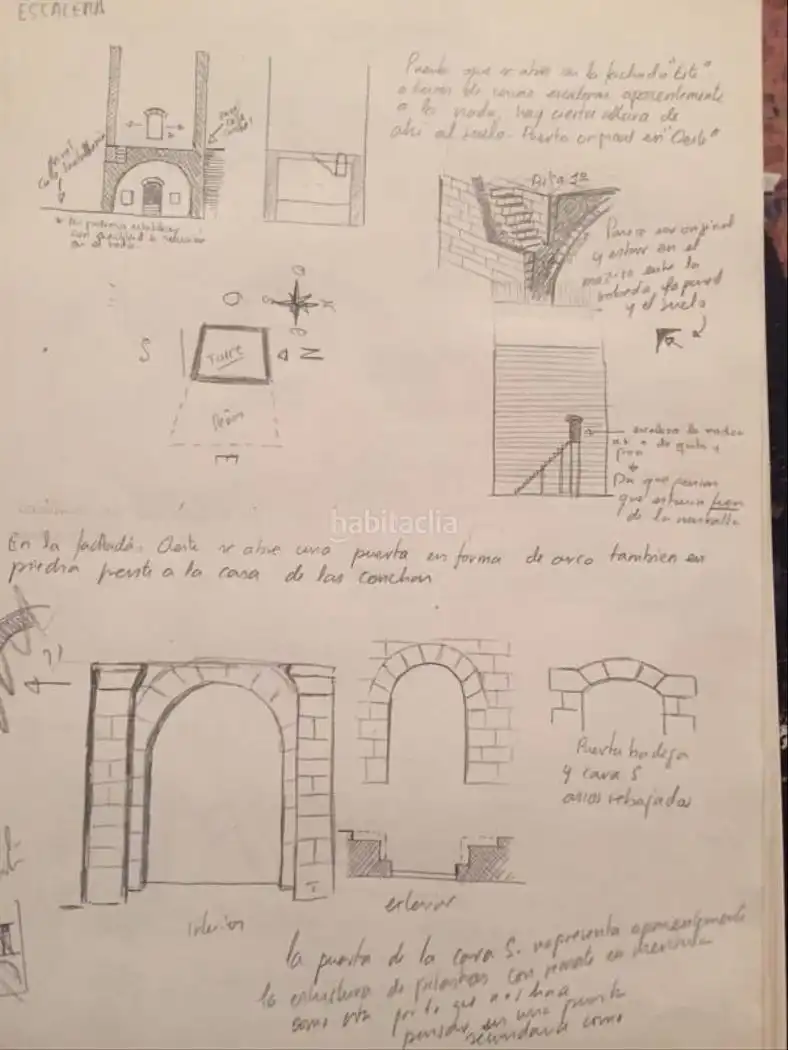 ESCALERA
Puerta que se abre en la fachada "Este"
a traves de unas escaleras aparentemente
a la nada, hay cierta altura de
ahí al suelo. Puerta original en "Oeste"
nivel
calle
nivel
* No podemos establecer
con
en el
Parece ser original
y estar en el
macizo entre la
bóveda, la pared
y el suelo
O
S
Torre
N
E
escalera de madera
de quita y
pon
*
Da que pensar
que estuviera fuera
de la muralla
habitaclia
En la fachada Oeste se abre una puerta en forma de arco tambien en
piedra frente a la casa de las conchas
Puerta bodega
y cara S
arcos rebajados
interior
exterior
la puerta de la cara S. representa aparentemente
la estructura de pilastras con remate en
como esta por lo que nos hace
pensar en una puerta
secundaria como